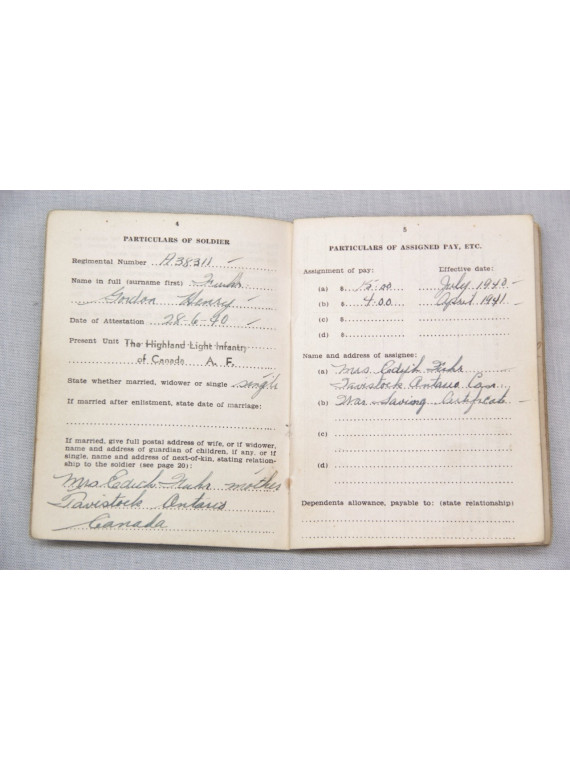 4
PARTICULARS OF SOLDIER
Regimental Number A38311 -
Name in full (surname first) Fuhr
Gordon Henry -
Date of Attestation 28-6-40 -
Present Unit The Highland Light Infantry
of Canada A. F.
State whether married, widower or single single
If married after enlistment, state date of marriage:
If married, give full postal address of wife, or if widower,
name and address of guardian of children, if any, or if
single, name and address of next-of-kin, stating relation-
ship to the soldier (see page 20):
Mrs Edith Fuhr mother
Tavistock Ontario
Canada
5
PARTICULARS OF ASSIGNED PAY, ETC.
Assignment of pay: Effective date:
(a) $ 15.00 July 1940 -
(b) $ 4.00 April 1941 -
(c) $
(d) $
Name and address of assignee:
(a) Mrs Edith Fuhr -
Tavistock Ontario Can.
(b) War Saving Certificate -
(c)
(d)
Dependents allowance, payable to: (state relationship)